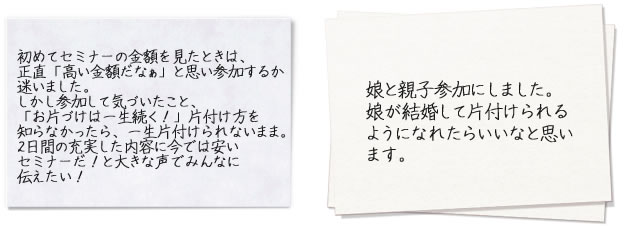 初めてセミナーの金額を見たときは、
正直「高い金額だなぁ」と思い参加するか
迷いました。
しかし参加して気づいたこと、
「お片づけは一生続く！」片付け方を
知らなかったら、一生片付けられないまま。
2日間の充実した内容に今では安い
セミナーだ！と大きな声でみんなに
伝えたい！
娘と親子参加にしました。
娘が結婚して片付けられる
ようになれたらいいなと思い
ます。